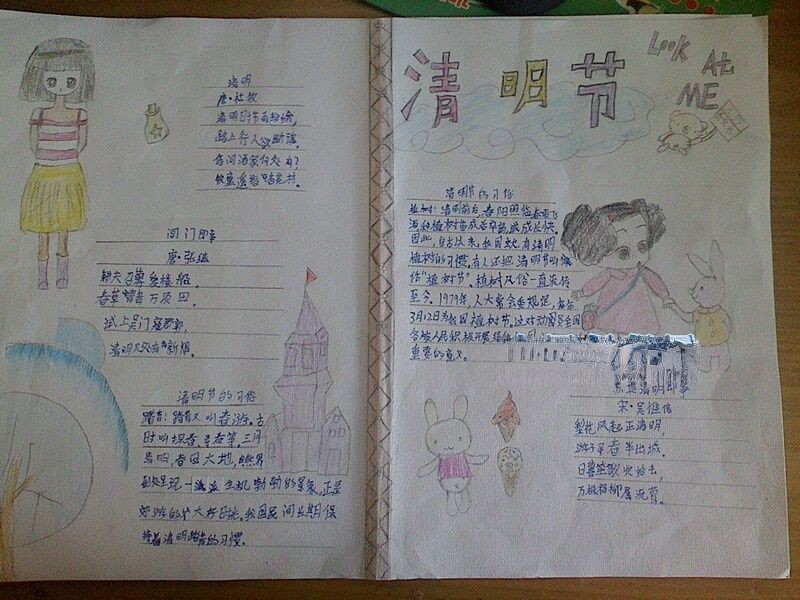 清明
唐·杜牧
清明时节雨纷纷,
路上行人欲断魂。
借问酒家何处有?
牧童遥指杏花村。
阊门即事
唐·张继
耕夫召募逐楼船,
春草青青万顷田,
试上吴门窥郡郭,
清明几处有新烟。
清明节的习俗
踏青:踏青又叫春游。古
时叫探春、寻春等。三月
清明,春回大地,自然界
到处呈现一派生机勃勃的景象,正是
郊游的大好日地。我国民间长期保
持着清明踏青的习惯。
清明节
Look At
ME
清明节的习俗
植树:清明前后,春阳照临,春雨飞
洒,种植树苗成活率高,成长快。
因此,自古以来,我国就有清明
植树的习惯。有人还把清明节叫做
作"植树节"。植树风俗一直流传
至今。1979年,人大常会委规定,每年
3月12日为我国植树节。这对动员全国
各族人民积极开展绿化
重要的意义。
苏堤清明即事
宋·吴惟信
梨花风起正清明,
游子寻春半出城。
日暮笙歌收拾去,
万株杨柳属流莺。